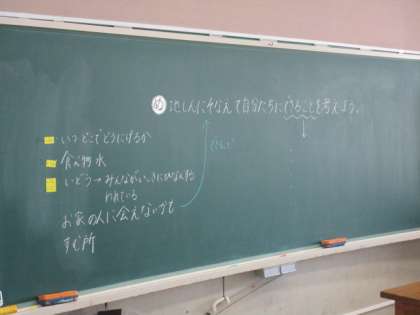 め 地しんにそなえて自分たちにできることを考えよう。
いつどこでどうにげるか
食べ物 水
いどう→みんながいっきに
われている
お家の人に会えないかも
すむ所